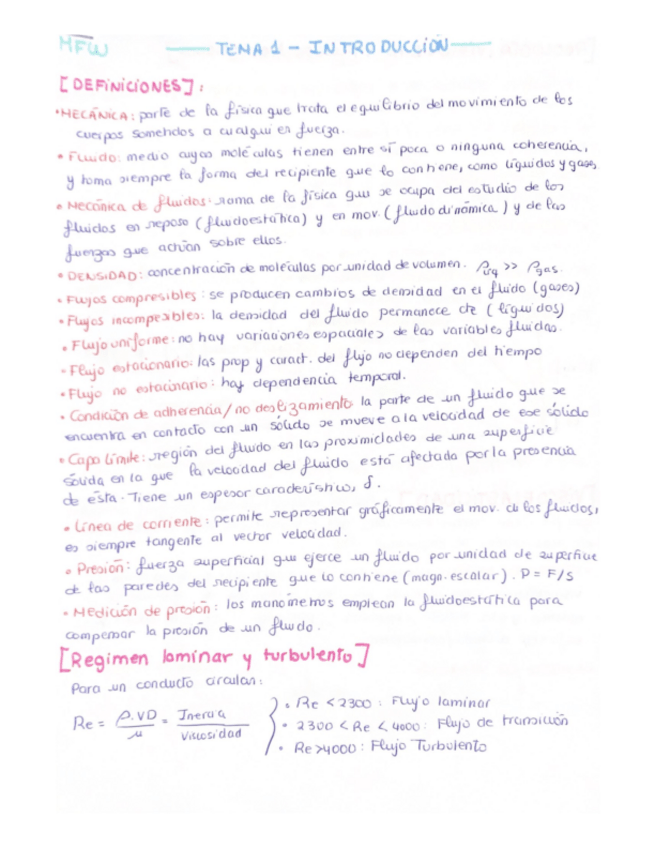 MFW TEMA 1 - INTRODUCCIÓN
[DEFINICIONES]:
• MECÁNICA: parte de la física que trata el equilibrio del movimiento de los
cuerpos sometidos a cualquier fuerza.
• Fluido: medio cuyas moléculas tienen entre sí poca o ninguna coherencia,
y toma siempre la forma del recipiente que lo contiene, como líquidos y gases,
• Mecánica de fluidos: rama de la física que se ocupa del estudio de los
fluidos en reposo (fluidoestática) y en mov. (fluidodinámica) y de las
fuerzas que actúan sobre ellos.
• DENSIDAD: concentración de moléculas por unidad de volumen. ρliq >> ρgas.
• Flujos compresibles: se producen cambios de densidad en el fluido (gases)
• Flujos incompresibles: la densidad del fluido permanece cte (líquidos)
• Flujo uniforme: no hay variaciones espaciales de las variables fluidas.
• Flujo estacionario: las prop y caract. del flujo no dependen del tiempo
• Flujo no estacinario: hay dependencia temporal.
• Condición de adherencia/no deslizamiento: la parte de un fluido que se
encuentra en contacto con un sólido se mueve a la velocidad de ese sólido
• Capa límite: región del fluido en las proximidades de una superficie
sólida en la que la velocidad del fluido está afectada por la presencia
de ésta. Tiene un espesor característico, δ.
• Línea de corriente: permite representar gráficamente el mov. de los fluidos,
es siempre tangente al vector velocidad.
• Presión: fuerza superficial que ejerce un fluido por unidad de superficie
de las paredes del recipiente que lo contiene (magn. escalar). P = F/S
• Medición de presión: los manómetros emplean la fluidoestática para
compensar la presión de un fluido.
[Regimen laminar y turbulento]
Para un conducto circular:
Re = ρ·VD / μ = Inercia / Viscosidad
• Re < 2300: Flujo laminar
• 2300 < Re < 4000: Flujo de transición
• Re > 4000: Flujo Turbulento